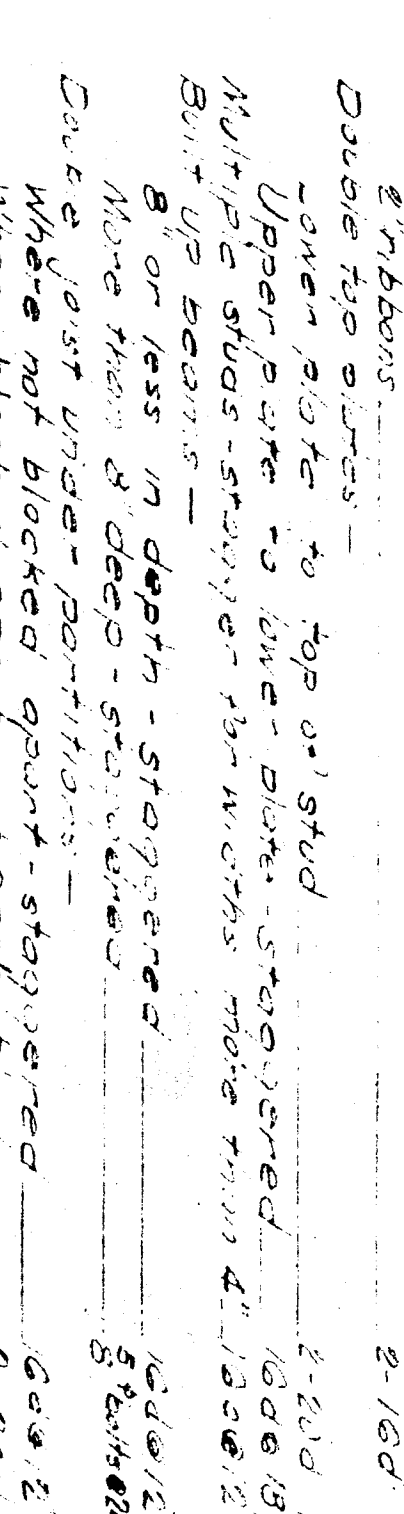 2" ribbons 2-16d
Double top plates —
Lower plate to top of stud 2-20d
Upper plate to lower plate - staggered 16d@18
Multiple studs - stagger for widths more than 4" 16d@12
Built up beams —
8" or less in depth - staggered 16d@12
More than 8" deep - staggered
Double joist under partitions —
Where not blocked apart - staggered 16d@12